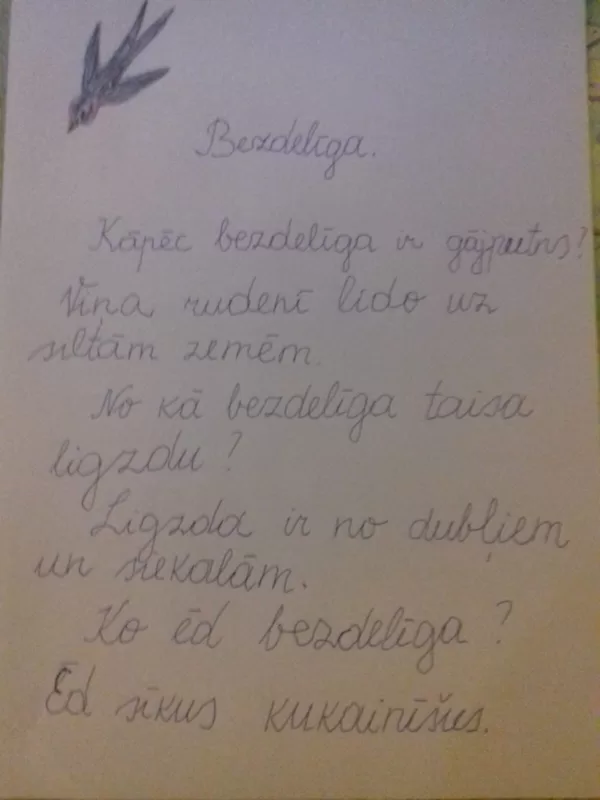 Bezdelīga.
Kāpēc bezdelīga ir gājputns?
Viņa rudenī lido uz
siltām zemēm.
No kā bezdelīga taisa
ligzdu?
Ligzda ir no dubļiem
un siekalām.
Ko ēd bezdelīga?
Ēd sīkus kukainīšus.